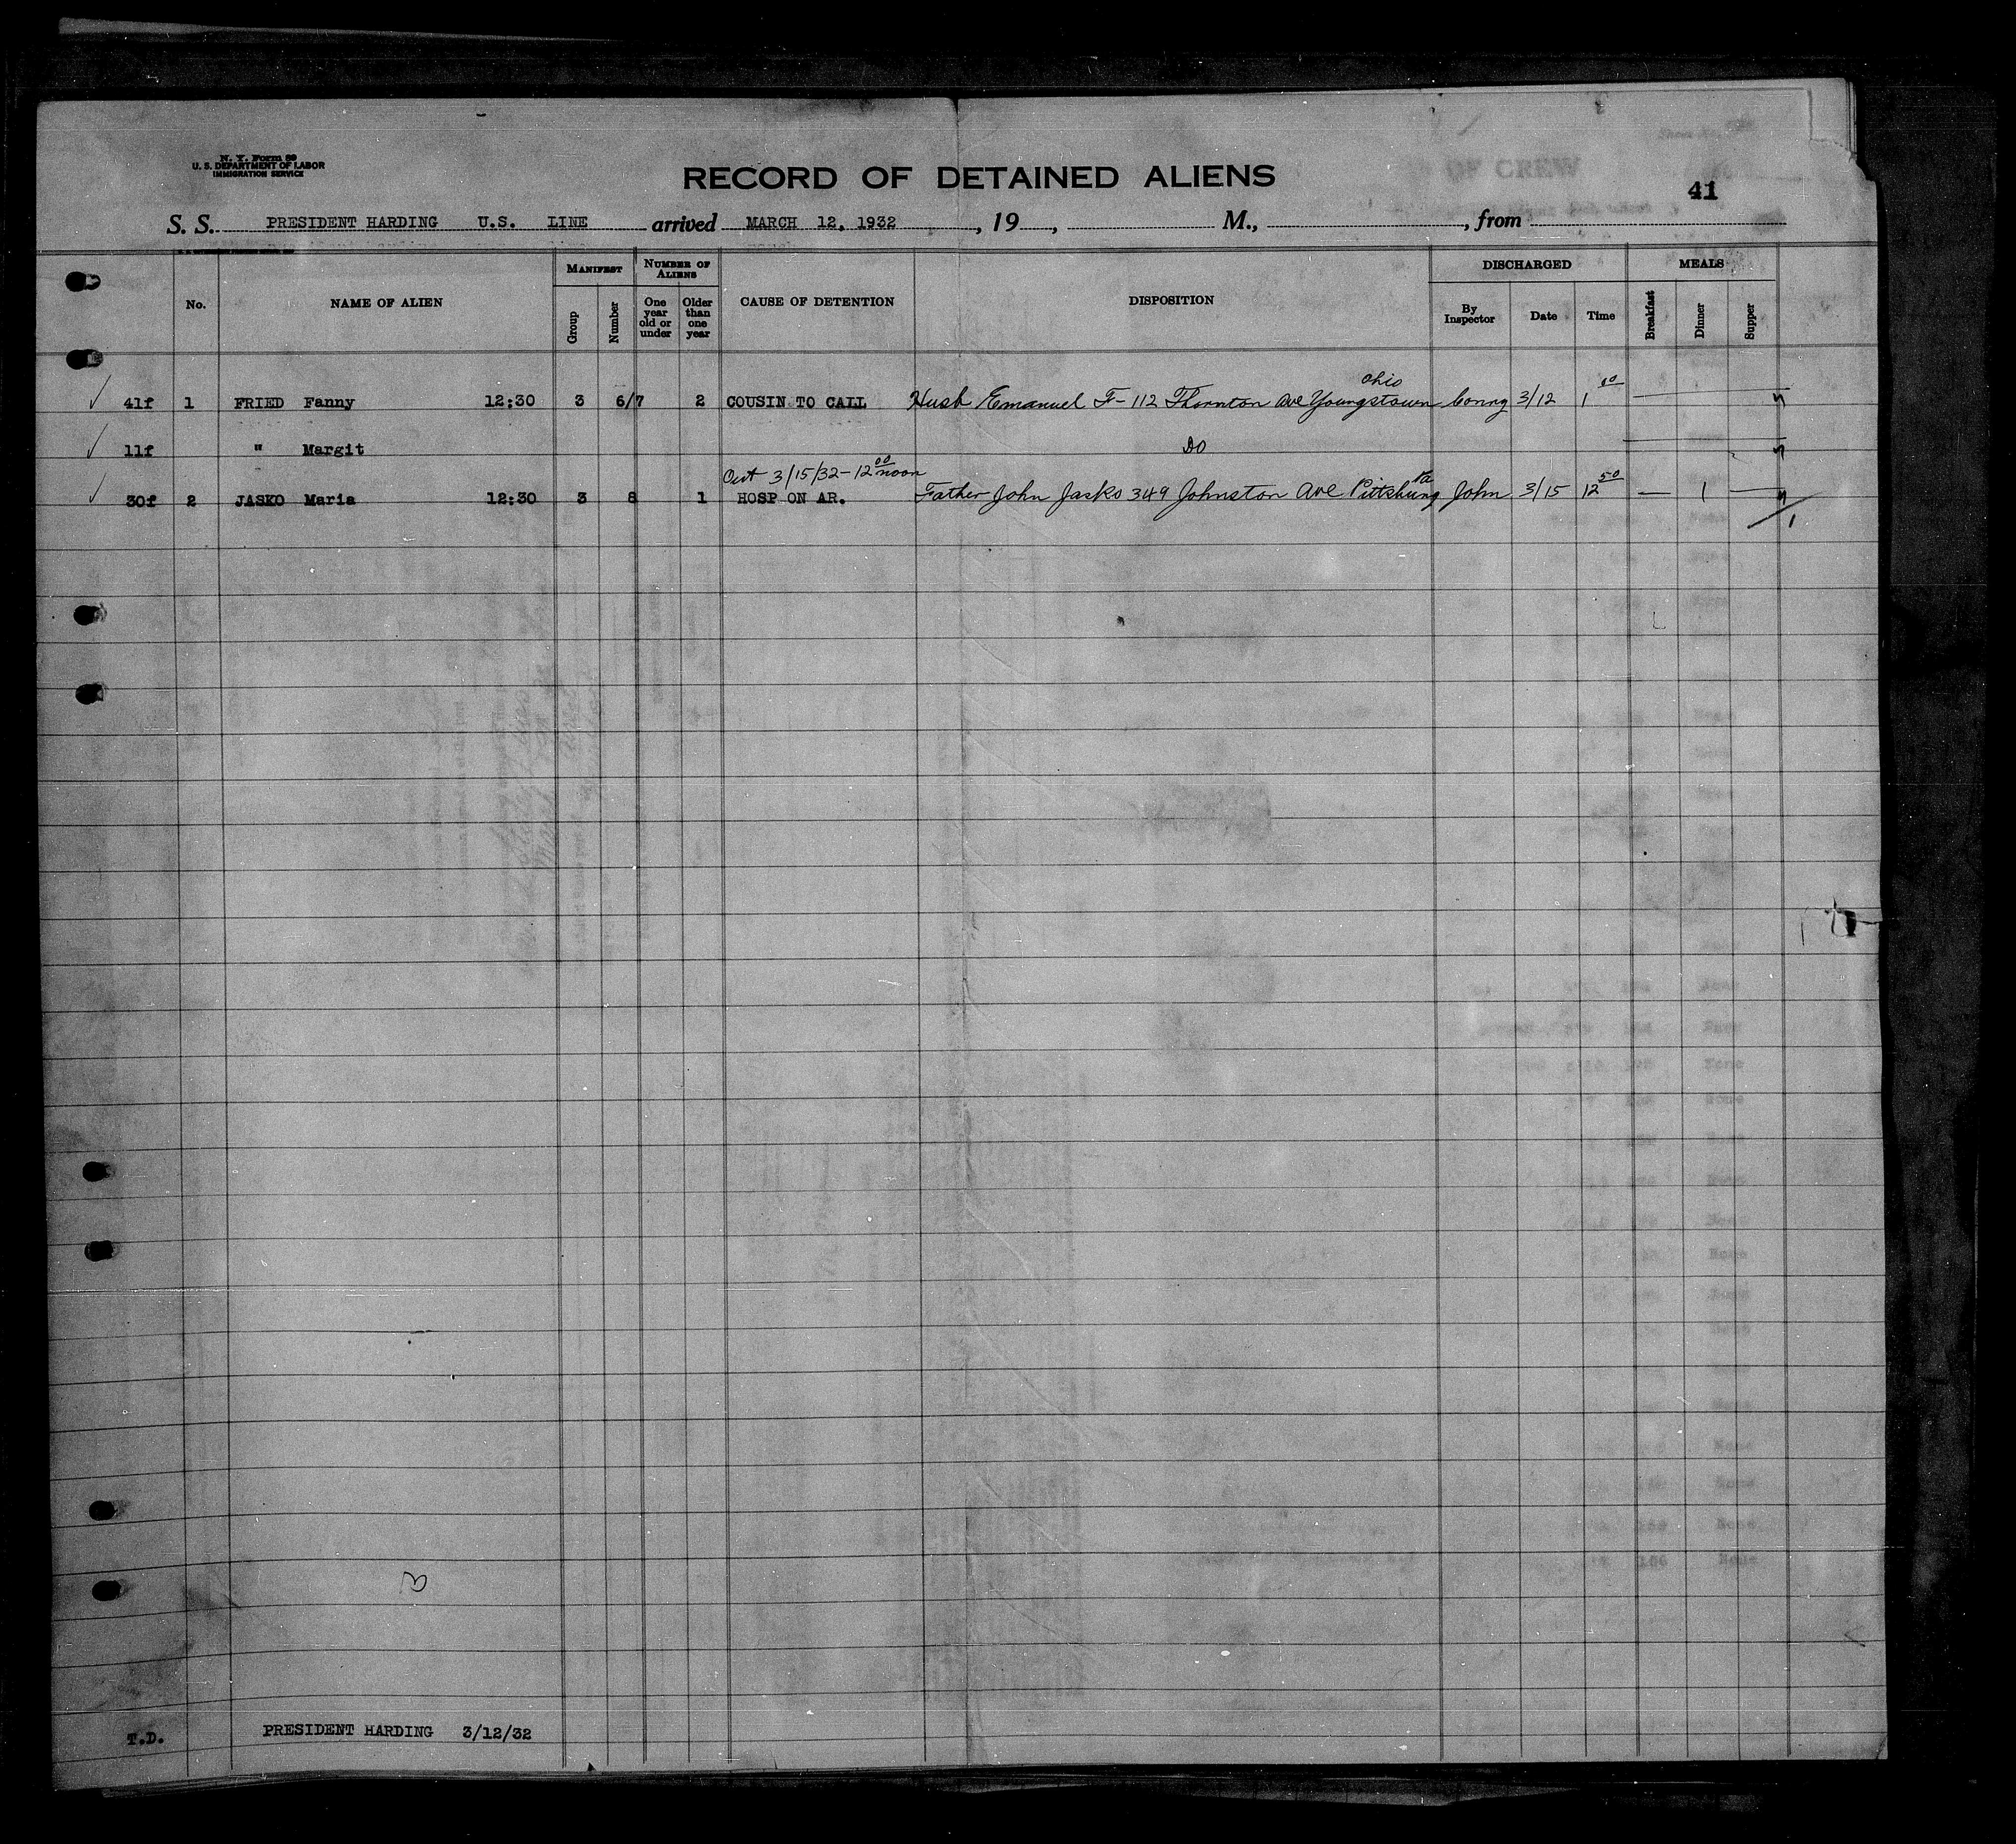 N. Y. Form 89
U. S. DEPARTMENT OF LABOR
IMMIGRATION SERVICE
RECORD OF DETAINED ALIENS
OF CREW
41
S. S. PRESIDENT HARDING U.S. LINE arrived MARCH 12, 1932, 19 , M., , from
No. NAME OF ALIEN MANIFEST Group Number NUMBER OF ALIENS One year old or under Older than one year CAUSE OF DETENTION DISPOSITION DISCHARGED By Inspector Date Time MEALS Breakfast Dinner Supper
Ohio
41f 1 FRIED Fanny 12:30 3 6/7 2 COUSIN TO CALL Husb Emanuel F- 112 Thornton Ave Youngstown 3/12 1 00
11f " Margit Do
Out 3/15/32 - 12 00 noon
Pa
30f 2 JASKO Maria 12:30 3 8 1 HOSP ON AR. Father John Jasko 349 Johnston Ave Pittsburg John 3/15 12 50 — 1 —
1
T.D. PRESIDENT HARDING 3/12/32